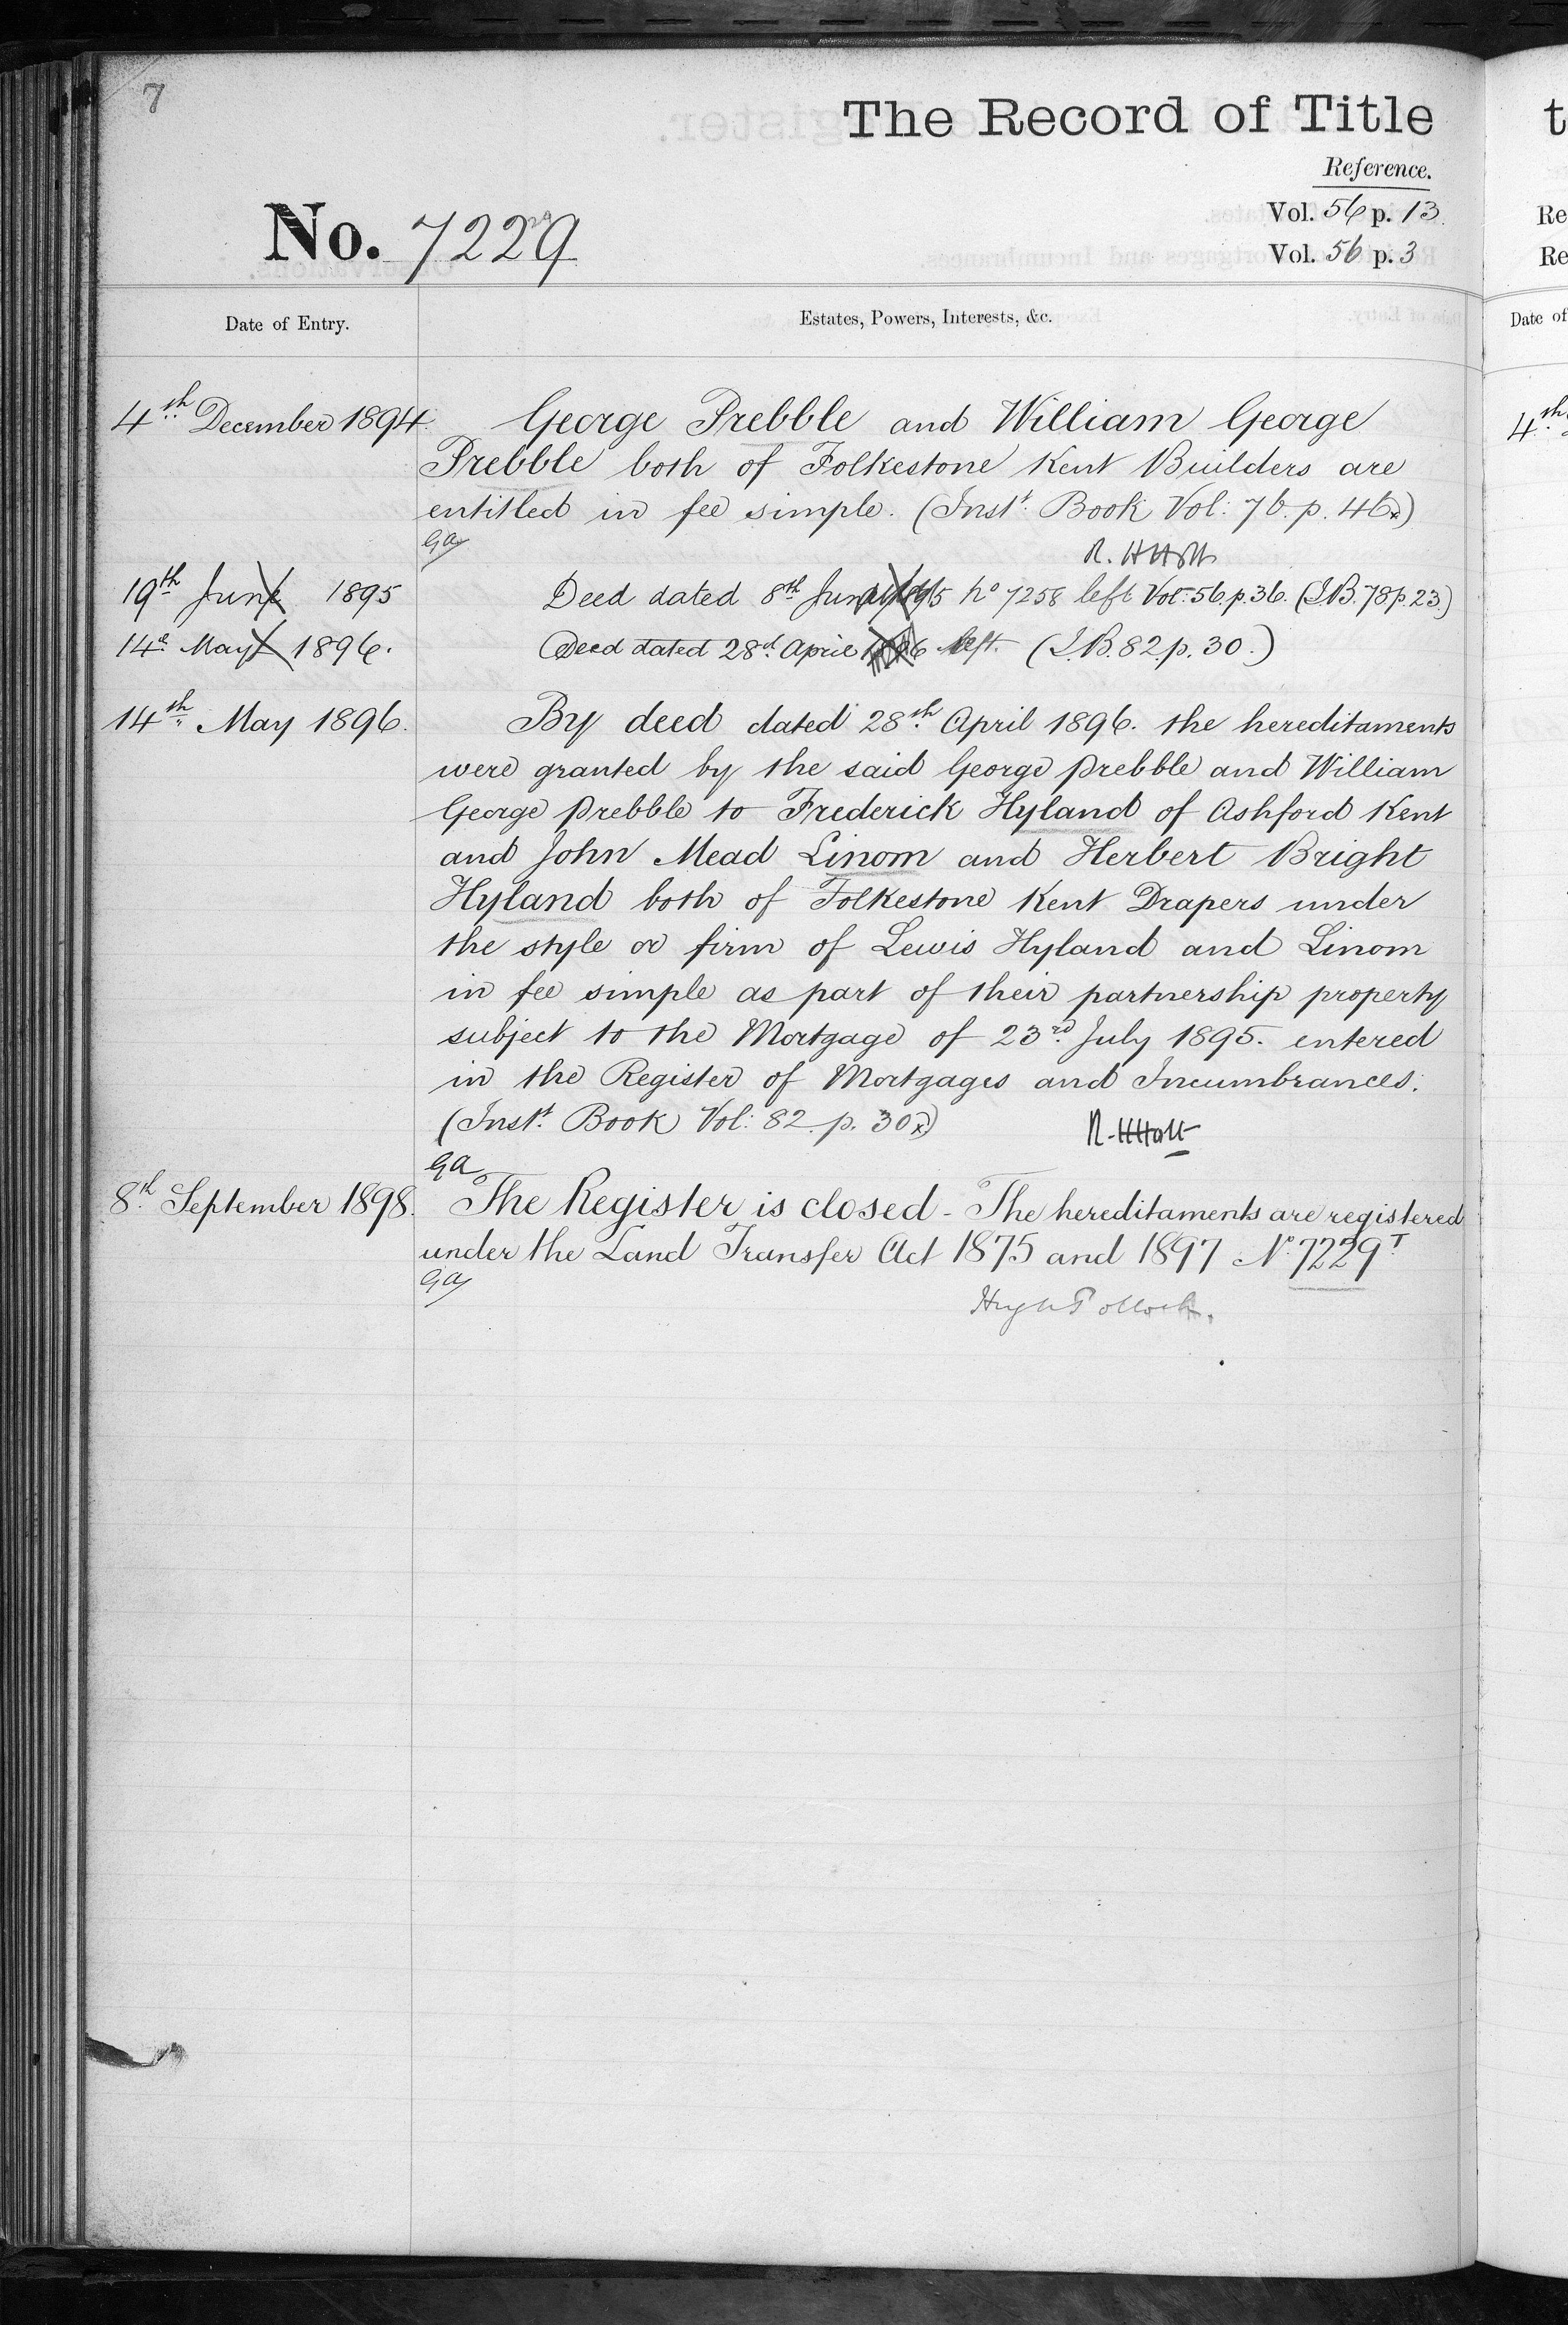 7
The Record of Title
Reference.
Vol. 56 p. 13.
No. 7229
Vol. 56 p. 3
Date of Entry.
Estates, Powers, Interests, &c.
4th December 1894. George Prebble and William George
Prebble both of Folkestone Kent Builders are
entitled in fee simple. (Inst. Book Vol: 76. p. 46x)
GA
R. H Holt
19th June 1895 Deed dated 8th June 1895 No 7258 left Vol: 56. p. 36. (I.B. 78 p. 23.)
14th May 1896. Deed dated 28th April 1896 left. (I.B. 82. p. 30.)
14th May 1896. By deed dated 28th April 1896. the hereditaments
were granted by the said George Prebble and William
George Prebble to Frederick Hyland of Ashford Kent
and John Mead Linom and Herbert Bright
Hyland both of Folkestone Kent Drapers under
the style or firm of Lewis Hyland and Linom
in fee simple as part of their partnership property
subject to the Mortgage of 23rd July 1895. entered
in the Register of Mortgages and Incumbrances.
(Inst. Book Vol: 82. p. 30x)
R. H Holt
GA
8th September 1898. The Register is closed - The hereditaments are registered
under the Land Transfer Act 1875 and 1897 No. 7229T
GA
Hugh Pollock.
t
Re
Re
Date of
4th